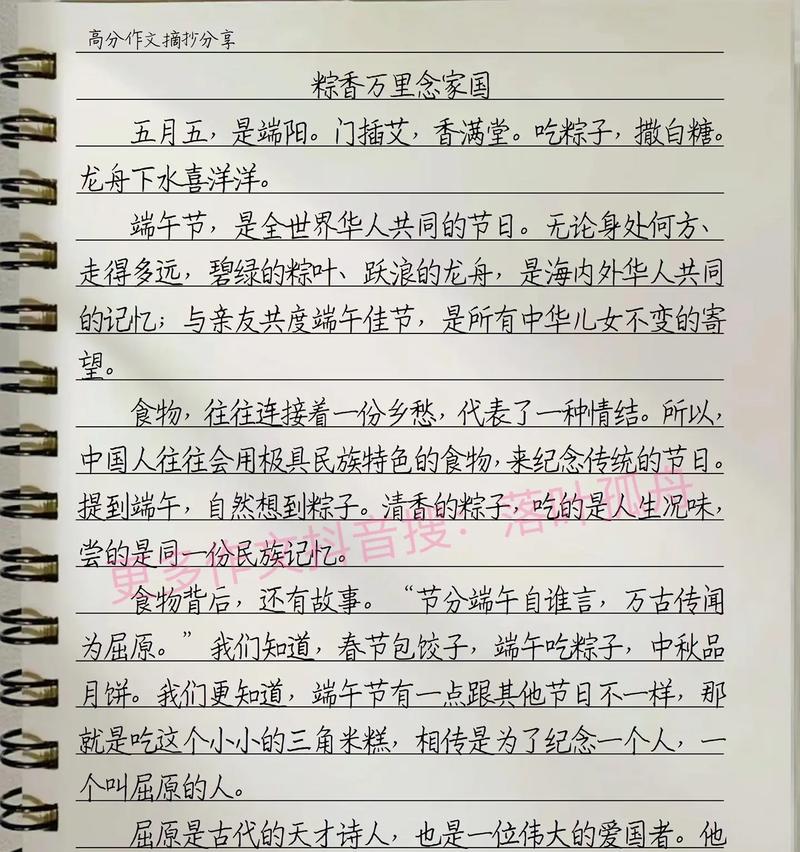 高分作文摘抄分享
粽香万里念家国
五月五，是端阳。门插艾，香满堂。吃粽子，撒白糖。
龙舟下水喜洋洋。
端午节，是全世界华人共同的节日。无论身处何方、
走得多远，碧绿的粽叶、跃浪的龙舟，是海内外华人共同
的记忆；与亲友共度端午佳节，是所有中华儿女不变的寄
望。
食物，往往连接着一份乡愁，代表了一种情结。所以，
中国人往往会用极具民族特色的食物，来纪念传统的节日。
提到端午，自然想到粽子。清香的粽子，吃的是人生况味，
尝的是同一份民族记忆。
更多作文抖音搜：落叶孤舟
食物背后，还有故事。“节分端午自谁言，万古传闻
为屈原。”我们知道，春节包饺子，端午吃粽子，中秋品
月饼。我们更知道，端午节有一点跟其他节日不一样，那
就是吃这个小小的三角米糕，相传是为了纪念一个人，一
个叫屈原的人。
屈原是古代的天才诗人，也是一位伟大的爱国者。他